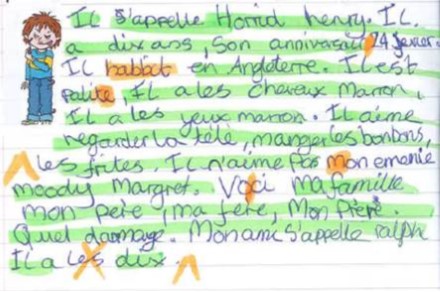 Il s'appelle Horrid henry. Il
a dix ans, Son anniversai 24 fevrier.
Il habbat en Angleterre. Il est
palite, Il a les cheveux Marron,
Il a les yeux marron. Il aime
regarder la télé, manger les bonbons,
les frites. Il n'aime pas mon emenie
moody Margret. Voci Ma famille
mon pere, ma fere, Mon Frere.
Quel dammage. Mon ami s'appelle ralph
Il a les dix.